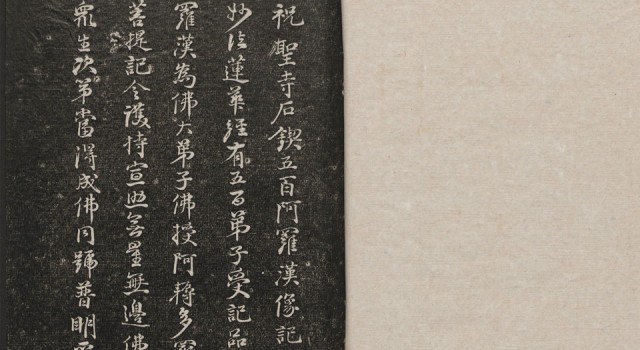 祝聖寺石鍥五百阿羅漢像記
妙法蓮華經有五百弟子受記品
羅漢為佛大弟子佛授阿耨多羅
菩提記令護持宣㘣無量無邊佛
眾生次第當得成佛同號普明